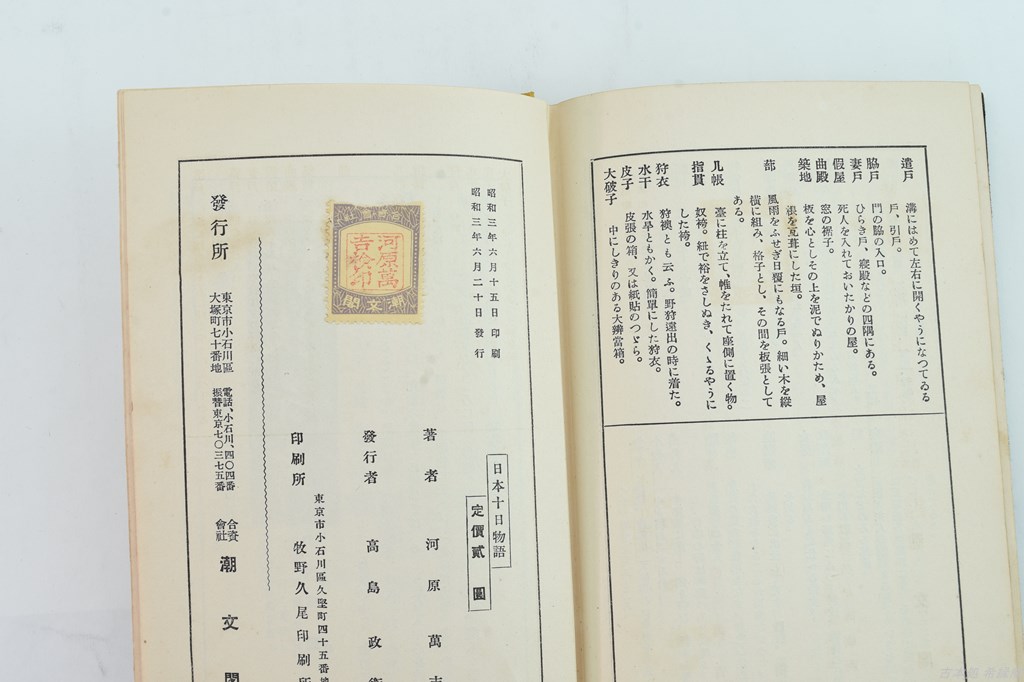 遣戸 溝にはめて左右に開くやうになつてゐる
戸、引戸。
脇戸 門の脇の入口。
妻戸 ひらき戸、寢殿などの四隅にある。
假屋 死人を入れておいたかりの屋。
曲殿 窓の梯子。
築地 板を心としその上を泥でぬりかため、屋
根を瓦葺にした垣。
蔀 風雨をふせぎ日覆にもなる戸。細い木を縱
橫に組み、格子とし、その間を板張として
ある。
几帳 臺に柱を立て、帷をたれて座側に置く物。
指貫 奴袴。紐で裕をさしぬき、くゝるやうに
した袴。
狩衣 狩襖とも云ふ。野狩遠出の時に着た。
水干 水旱ともかく。簡單にした狩衣。
皮子 皮張の箱、又は紙貼のつゞら。
大破子 中にしきりのある大辨當箱。
昭和三年六月十五日印刷
昭和三年六月二十日發行
潮文閣
河原萬
吉
印
日本十日物語
定價貳圓
著者 河原萬
發行者 高島政
東京市小石川區久堅町四十五番
印刷所 牧野久尾印刷所
發行所
東京市小石川區
大塚町七十番地
電話、小石川、四〇四番
振替東京七〇三七五番
合資
會社
潮文閣